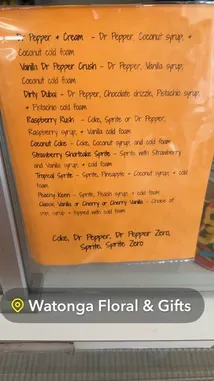 Dr Pepper + Cream - Dr Pepper, Coconut syrup, +
Coconut cold foam
Vanilla Dr Pepper Crush - Dr Pepper, Vanilla syrup,
Coconut cold foam
Dirty Dubai - Dr Pepper, Chocolate drizzle, Pistachio syrup,
+ Pistachio cold foam
Raspberry Rush - Coke, Sprite or Dr Pepper,
Raspberry syrup, + Vanilla cold foam
Coconut Coke - Coke, Coconut syrup, and cold foam
Strawberry Shortcake Sprite - Sprite with Strawberry
and Vanilla syrup, + cold foam
Tropical Sprite - Sprite, Pineapple + Coconut syrup, + cold
foam
Peachy Keen - Sprite, Peach syrup, + cold foam
Classic Vanilla or Cherry or Cherry Vanilla - Choice of
syrup + topped with cold foam
Coke, Dr Pepper, Dr Pepper Zero,
Sprite, Sprite Zero
Watonga Floral & Gifts